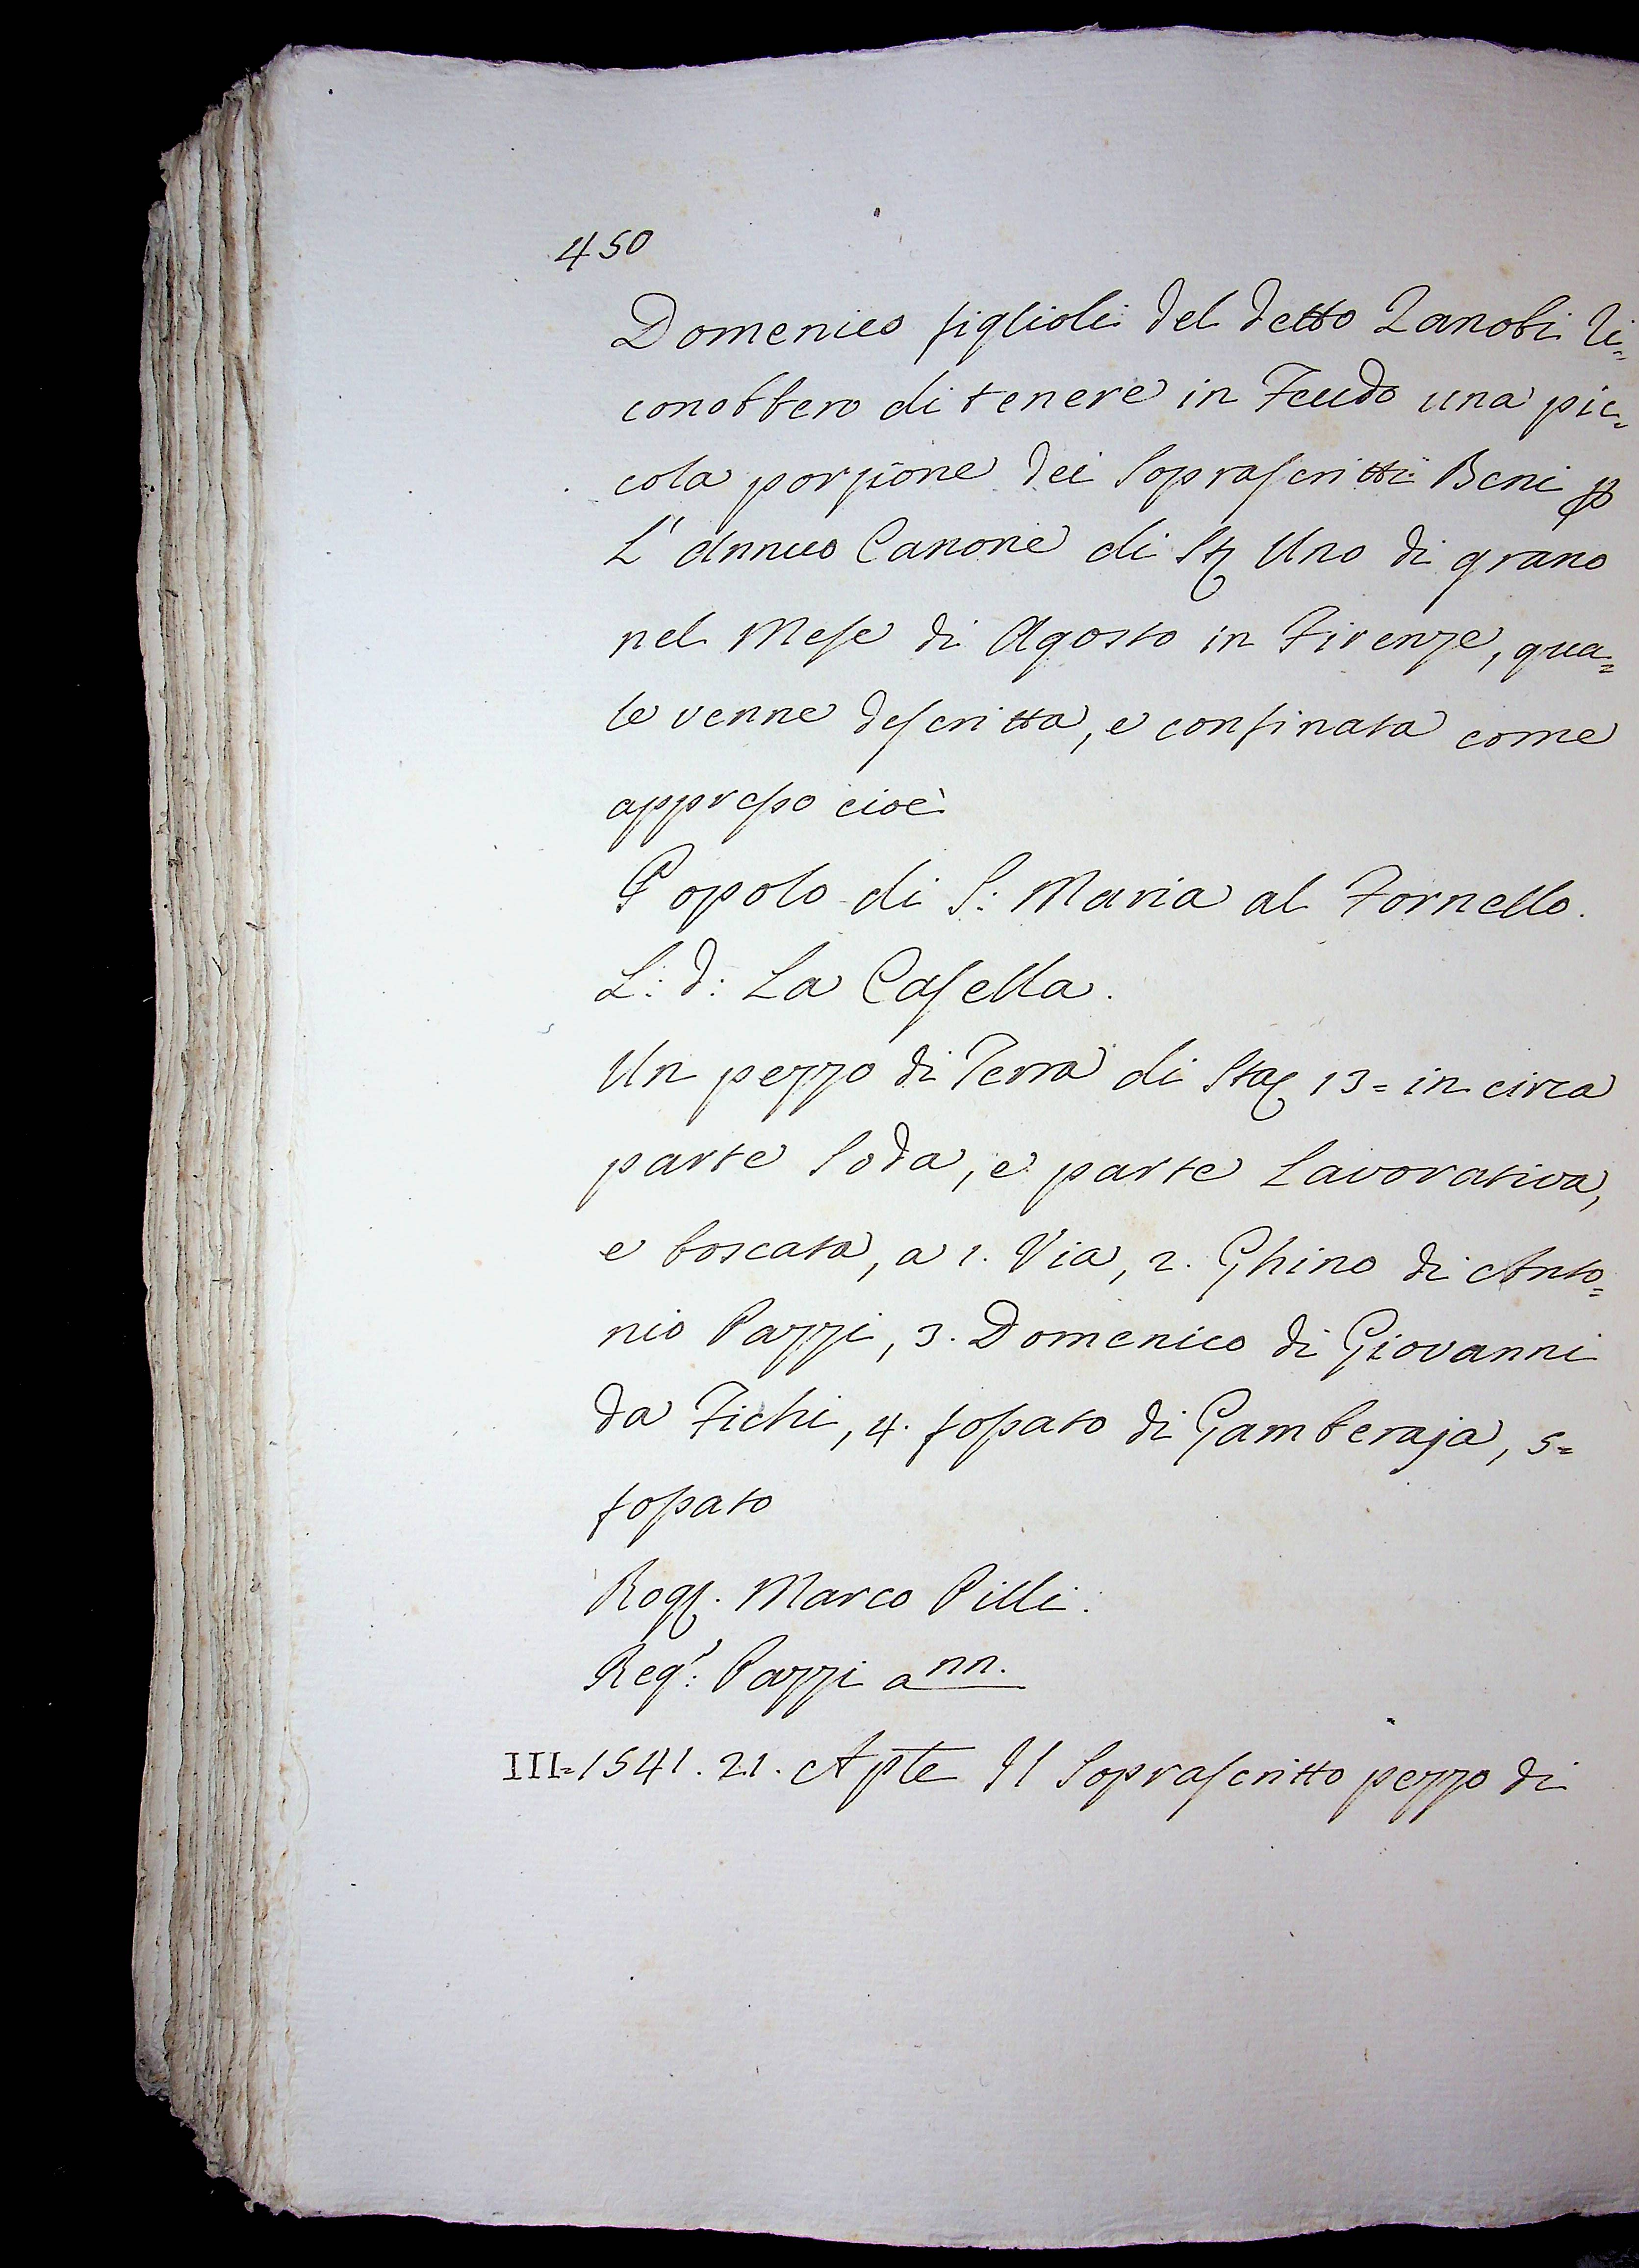 450
Domenico figlioli del detto Zanobi ri=
conobbero di tenere in Feudo una pic=
cola porzione dei Soprascritti Beni p
L'annuo Canone di St Uno di grano
nel Mese di Agosto in Firenze, qua=
le venne descritta, e confinata come
appresso cioè
Popolo di S: Maria al Fornello.
L: d: La Casella.
Un pezzo di Terra di Sta 13= in circa
parte Soda, e parte Lavorativa,
e boscata, a 1. Via, 2. Ghino di Anto=
nio Pazzi, 3. Domenico di Giovanni
da Fichi, 4. fossato di Gamberaja, 5=
fossato
Rog. Marco Pilli.
Reg.: Pazzi a nn.
III=1541. 21. Apte Il Soprascritto pezzo di